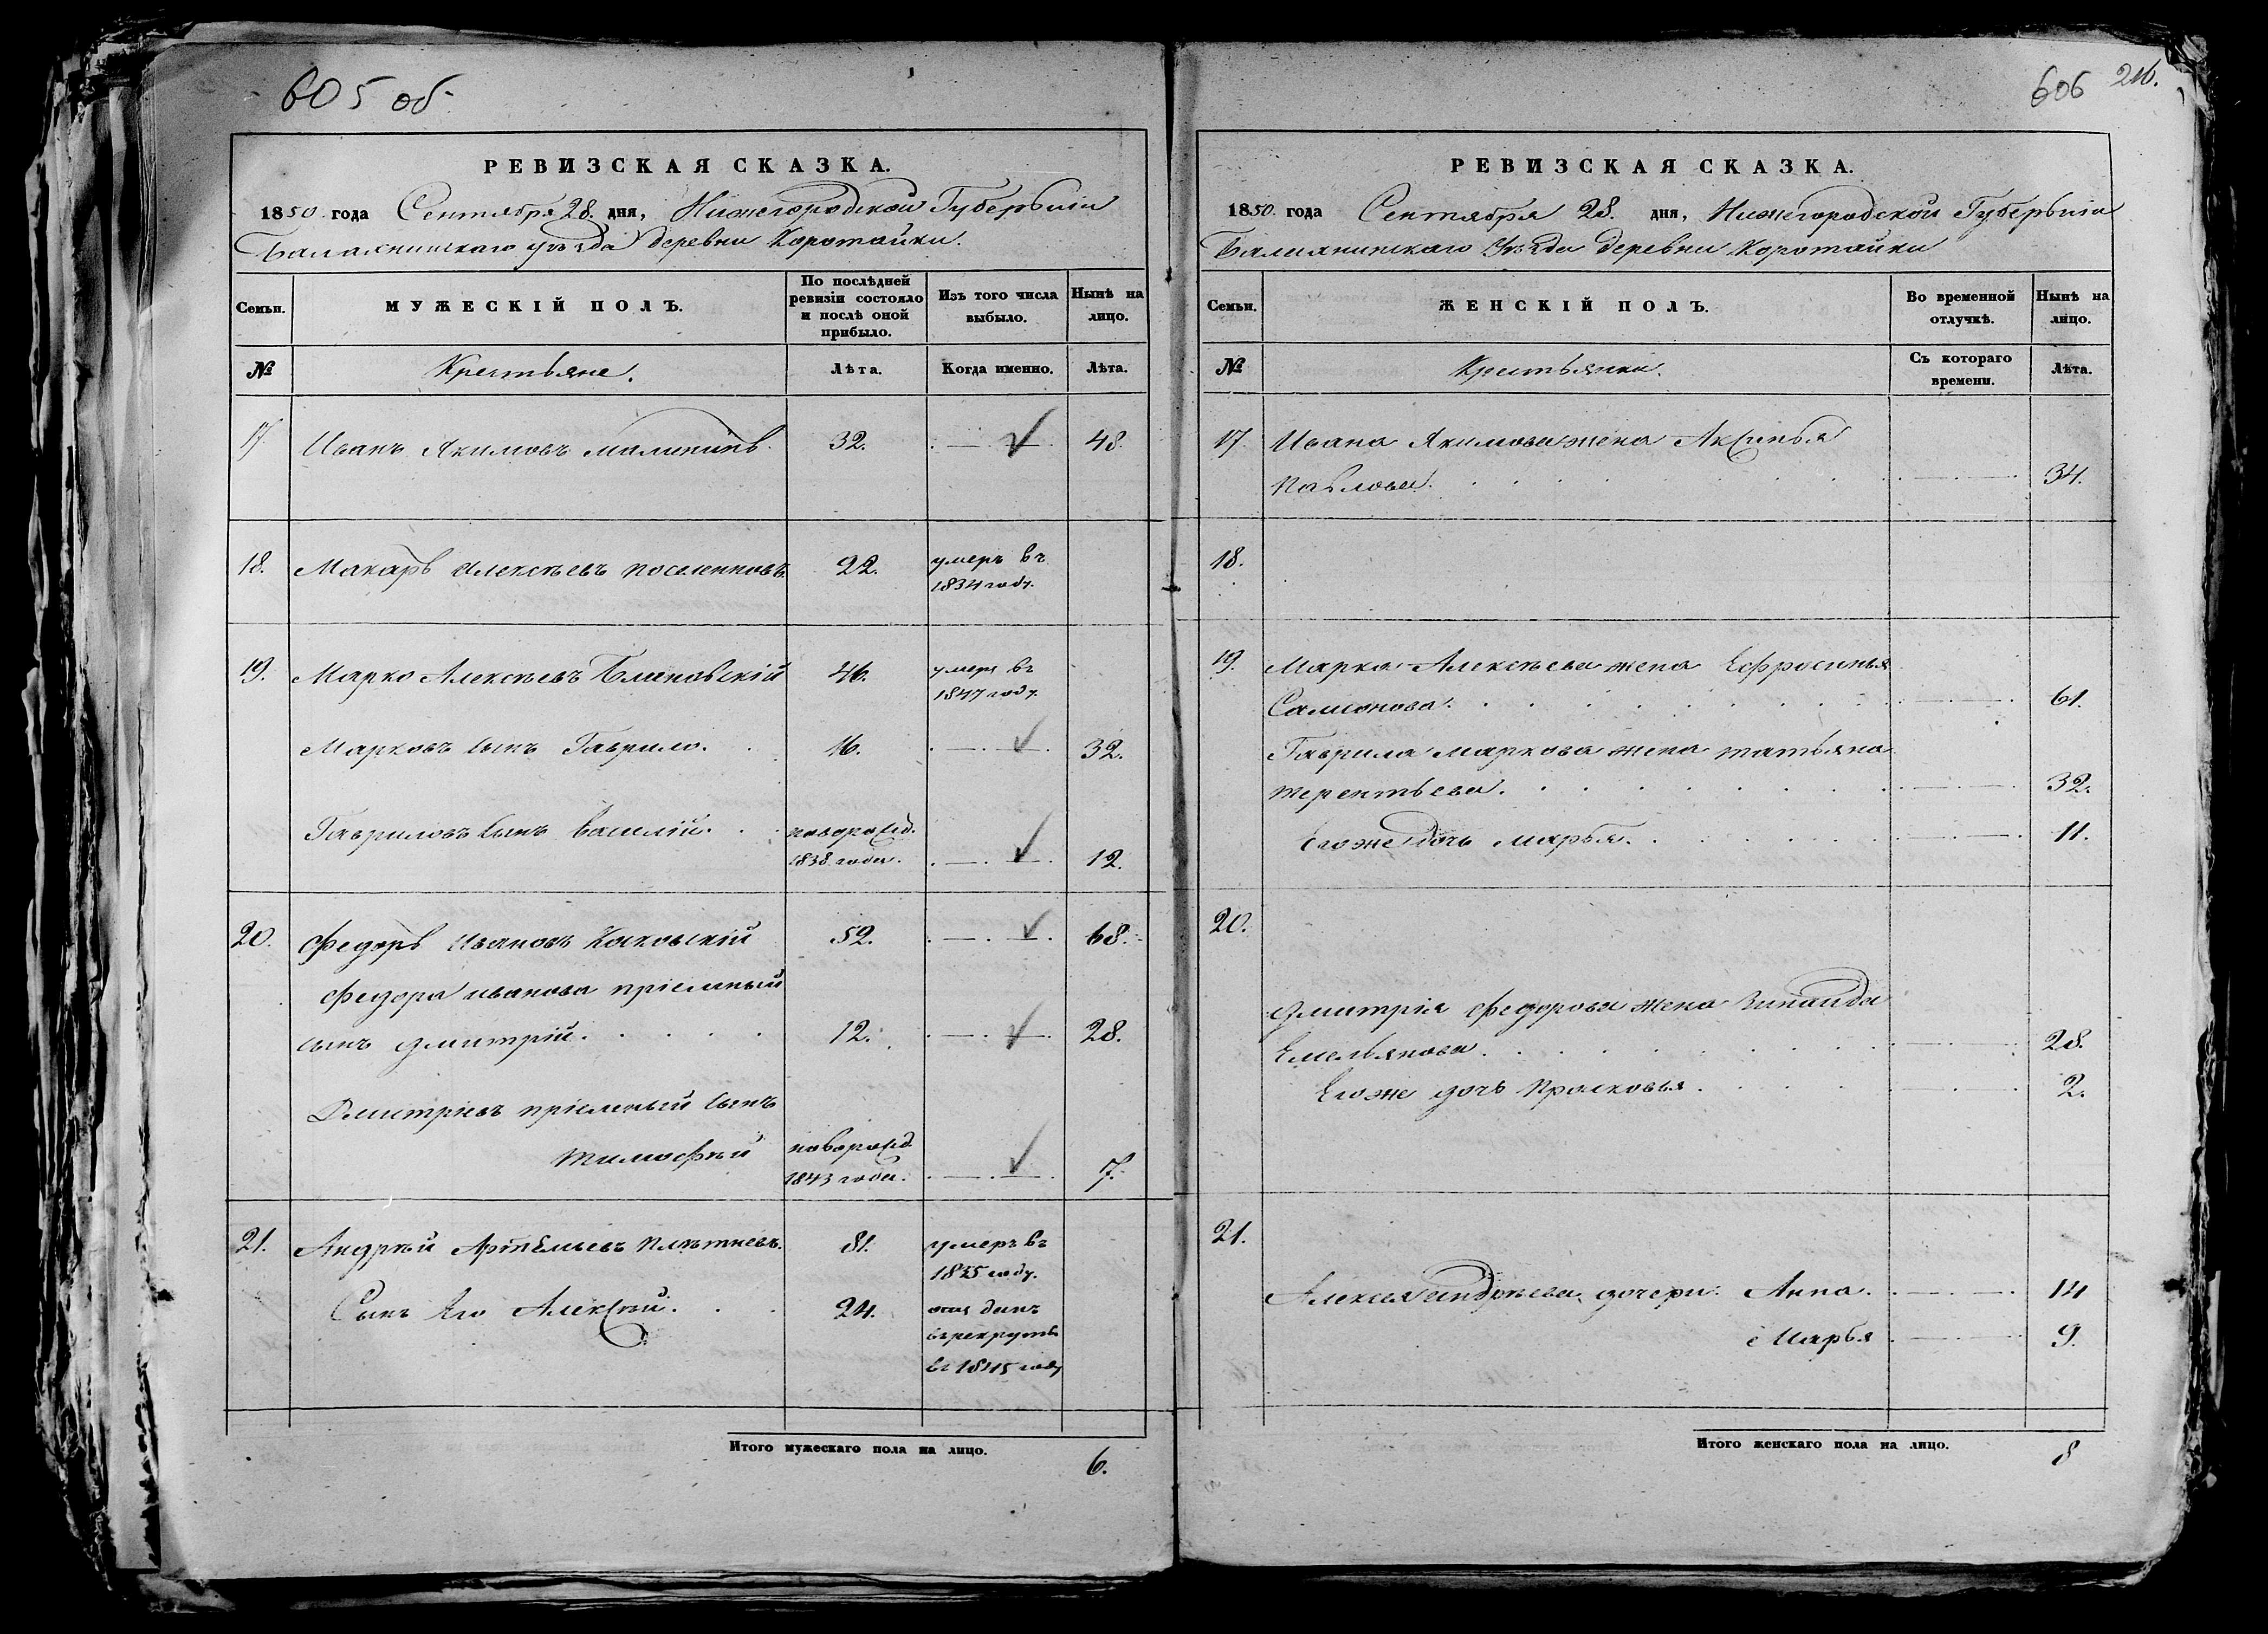 605 об
РЕВИЗСКАЯ СКАЗКА.
1850 года Сентября 28. дня, Нижегородской Губерніи
Балахнинскаго уѣзда деревни Коротайки.
Семьи. МУЖЕСКІЙ ПОЛЪ. По послѣдней ревизіи состояло и послѣ оной прибыло. Изъ того числа выбыло. Нынѣ на лицо.
№ Крестьяне. Лѣта. Когда именно. Лѣта.
17 Иванъ Якимовъ Малининъ 32. 48.
18. Макаръ Алексѣевъ 22. умеръ въ
1834 году.
19. Марко Алексѣевъ 46. умеръ въ
1847 году.
Марковъ сынъ Гаврило. 16. 32.
Гавриловъ сынъ Василій. новорожд.
1838 года. 12.
20. Федоръ Ивановъ 52. 68.
Федора Иванова пріемный
сынъ Дмитрій. 12. 28.
Дмитріевъ пріемный сынъ
Тимофѣй новорожд.
1843 года. 7.
21. Андрѣй Артемьевъ 81. умеръ въ
1835 году.
Сынъ Его Алексѣй. 24. отданъ
въ рекруты
въ 1845 году
Итого мужескаго пола на лицо. 6.
606 216.
РЕВИЗСКАЯ СКАЗКА.
1850. года Сентября 28. дня, Нижегородской Губерніи
Балахнинскаго Уѣзда деревни Коротайки
Семьи. ЖЕНСКІЙ ПОЛЪ. Во временной отлучкѣ. Нынѣ на лицо.
№ Крестьянки. Съ котораго времени. Лѣта.
17. Ивана Якимова жена Аксинья
Павлова. 34.
18.
19. Марка Алексѣева жена Ефросинья
Самсонова. 61.
Гаврила Маркова жена Татьяна
Терентьева. 32.
Его же дочь Марья. 11.
20.
Дмитрія Федорова жена Зинаида
Емельянова. 28.
Его же дочь Прасковья. 2.
21.
Алексѣя Андрѣева дочери: Анна. 14
Марья 9.
Итого женскаго пола на лицо. 8